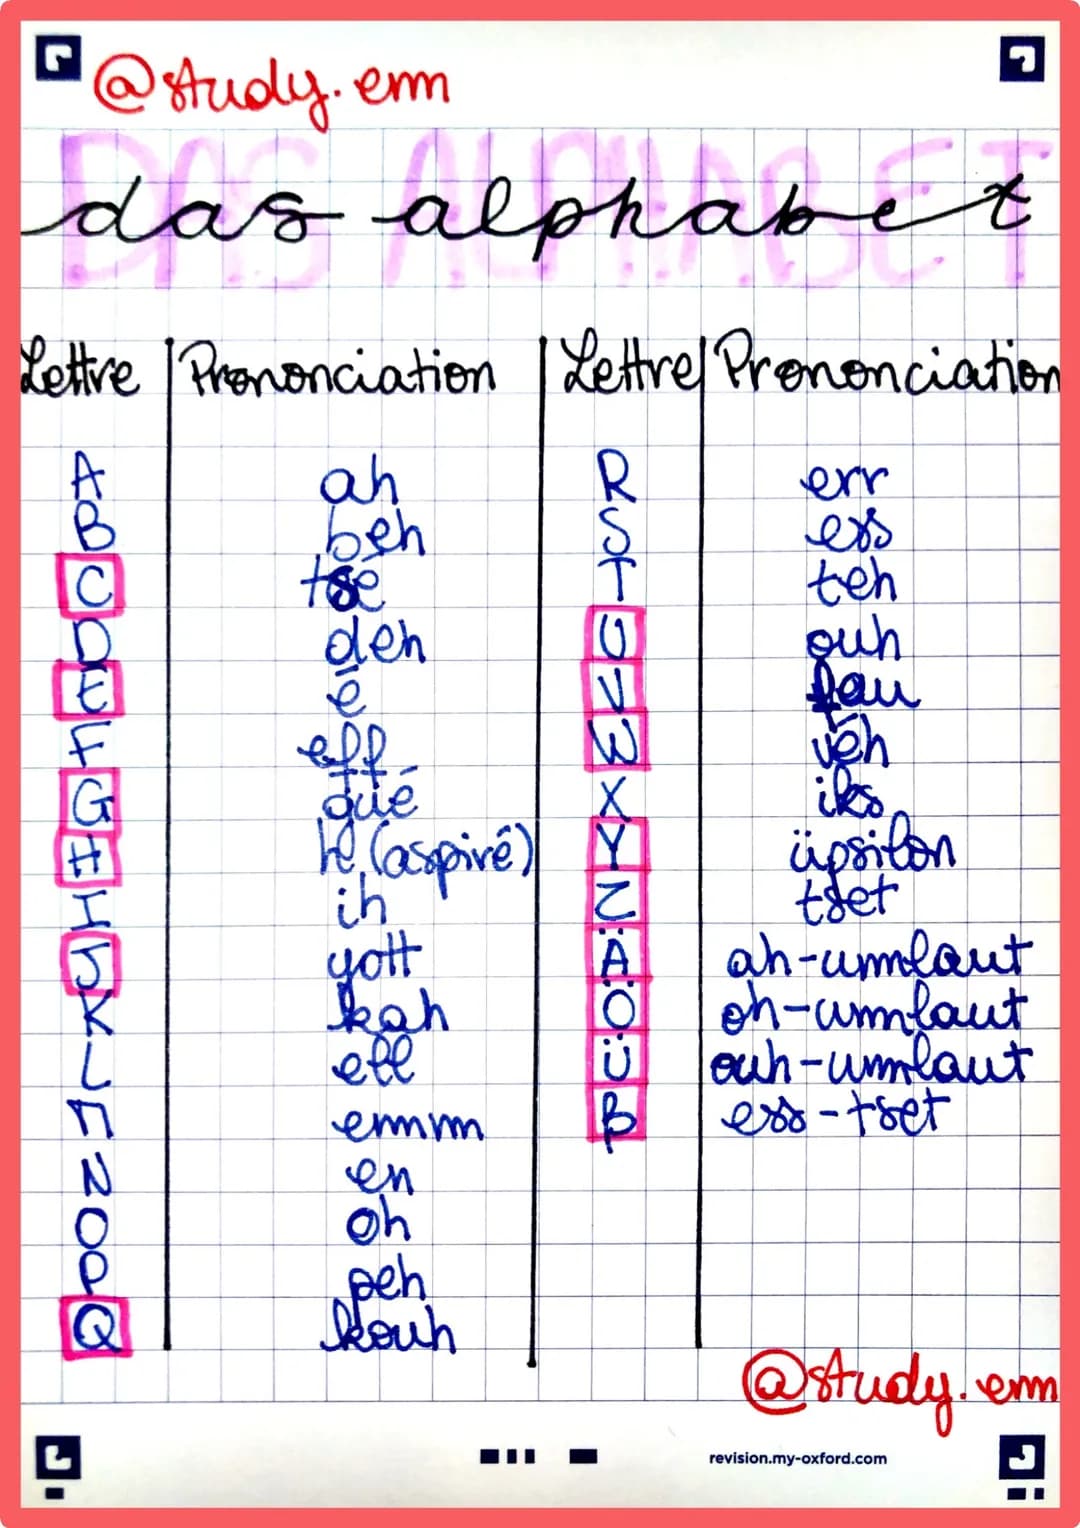 @study.enn
DAS ALPHABET
das alphabet
Lettre Prononciation Lettre Prononciation
A ah R err
B beh S ess
C tsé T teh
D deh U ouh
E é V fau
F eff W véh
G gué X iks
H hé (aspiré) Y üpsilon
I ih Z tset
J yott Ä ah-umlaut
K kah Ö oh-umlaut
L ell Ü ouh-umlaut
M emm ß ess-tset
N en
O oh
P peh
Q kouh
@study.enn
revision.my-oxford.com